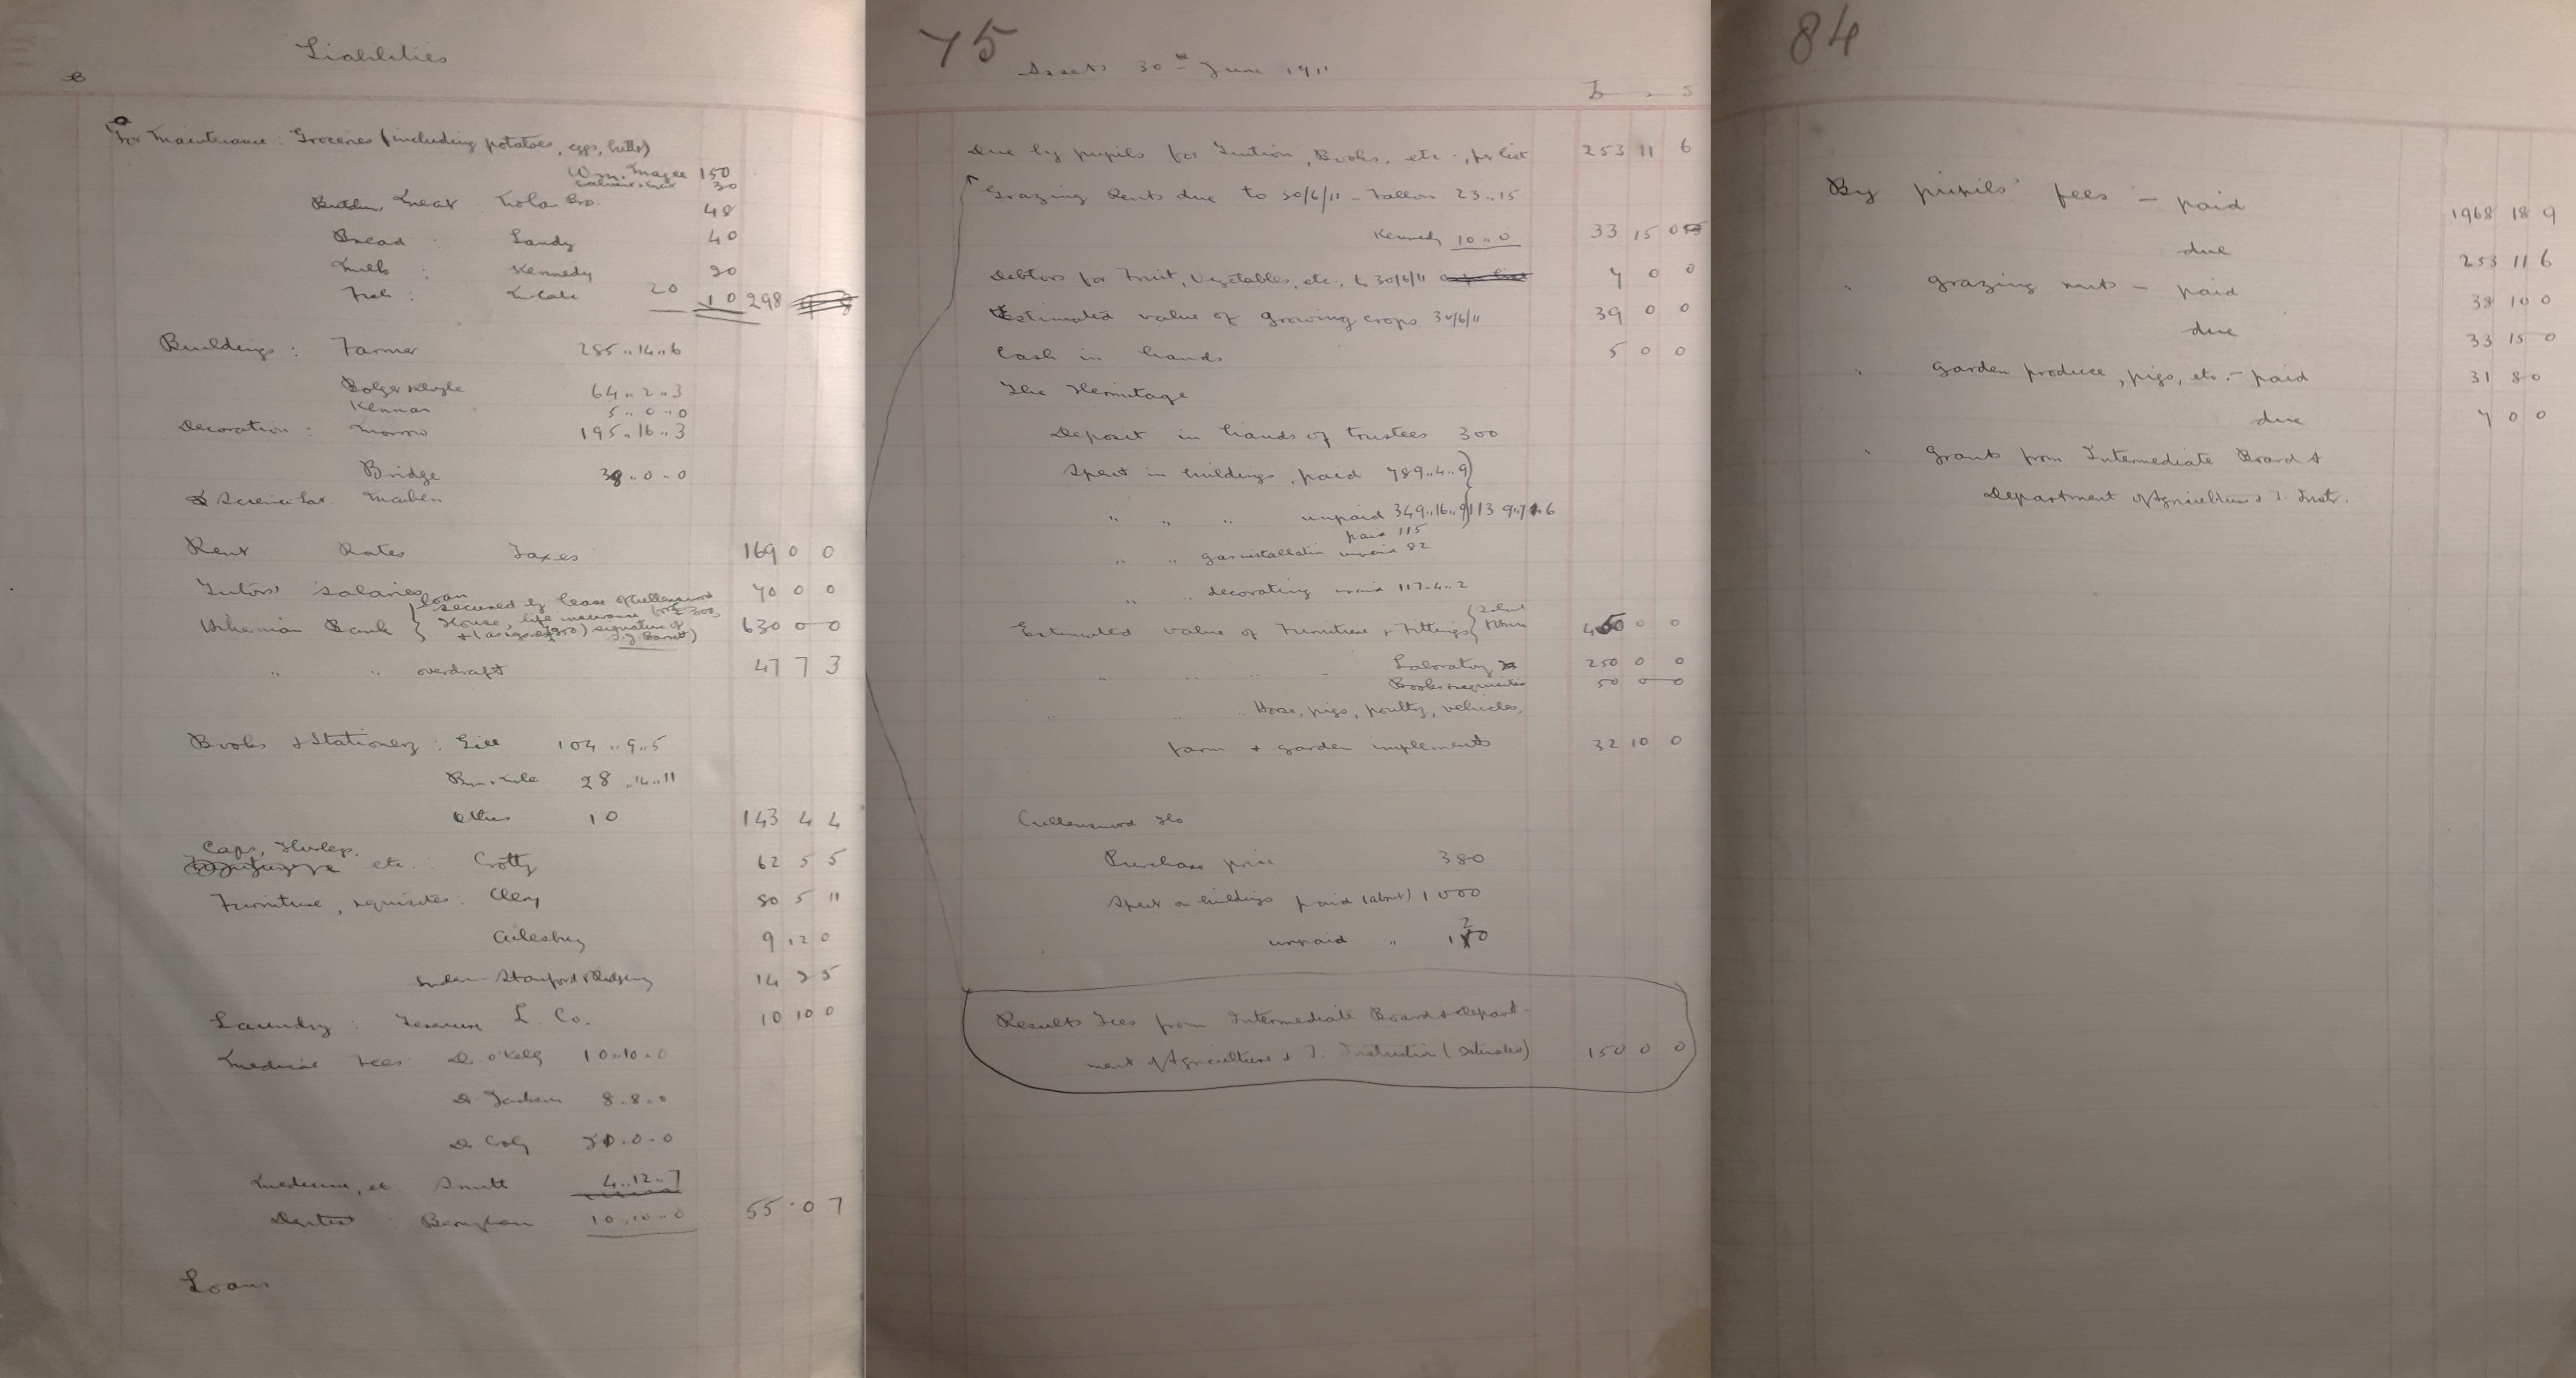 Liabilities
For Maintenance: Groceries (including potatoes, eggs, butter)
Wm. Magee 150
30
Meat Bro. 48
Bread : Landy 40
Milk : Kennedy 20
Fish : McCabe 20 10 298
Buildings : Farmer 285..14..6
64..2..3
Kennan 5..0..0
Decoration : Morrow 195..16..3
Bridge 38..0..0
Science Lat.
Rent Rates Taxes 169 0 0
Tutors' salaries 70 0 0
loan
secured by lease of Cullenswood
House, life insurance for £300,
signature of
Hibernian Bank 630 0 0
" " overdraft 47 7 3
Books & Stationery : Gill 104..9..5
28..14..11
Others 10 143 4 4
Caps, Hurleys,
etc. : Crotty 62 5 5
Furniture, requisites : Clery 80 5 11
Ailesbury 9 12 0
14 2 5
Laundry : Terenure L. Co. 10 10 0
Medical Fees Dr. O'Kelly 10..10..0
Dr. 8..8..0
Dr. Coly
Medicine, etc Smith 4..12..7
Dentist : 10..10..0 55 0 7
Loans
75
Assets 30th June 1911
£ s
Due by pupils for Tuition, Books, etc., per list 253 11 6
Grazing Rents due to 30/6/11 – Fallon 23..15
Kennedy 10..0 33 15 0
Debtors for Fruit, Vegetables, etc. to 30/6/11 7 0 0
Estimated value of growing crops 30/6/11 39 0 0
Cash in hands 5 0 0
The Hermitage
Deposit in hands of trustees 300
Spent in buildings, paid 789..4..9
" " " unpaid 349..16..9
paid 115
" " gas installation unpaid 82
" " decorating unpaid 117..4..2
Estimated value of Furniture & Fittings 0 0
" " " " Laboratory 250 0 0
Books & requisites 50 0 0
" " " Horse, pigs, poultry, vehicles,
farm & garden implements 32 10 0
Cullenswood Ho
Purchase price 380
Spent on buildings paid (about) 1000
unpaid "
Results Fees from Intermediate Board & Depart-
ment of Agriculture & T. Instruction (estimated) 150 0 0
84
By pupils' fees – paid 1968 18 9
due 253 11 6
" grazing rents – paid 38 10 0
due 33 15 0
" garden produce, pigs, etc. – paid 31 8 0
due 7 0 0
" Grants from Intermediate Board &
Department of Agriculture & T. Instr.